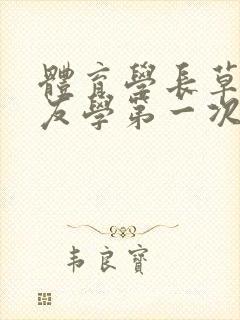 體育學長草
友學第一次
韦良寶